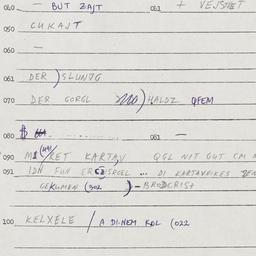 040 — BUT ZAJT 041 + VEJSTET
050 CUKAJT
060 —
061 DER ) SLUNJG
070 DER GORGL ) HALDZ QFEM
080 081 —
090 KARTAV QGL NIT GUT CM
091 IDN FUN ... DI KARTAVEIKES
GEKUMEN (302 ) - BRODCRIST
100 KELXELE / A DINEM KOL (022